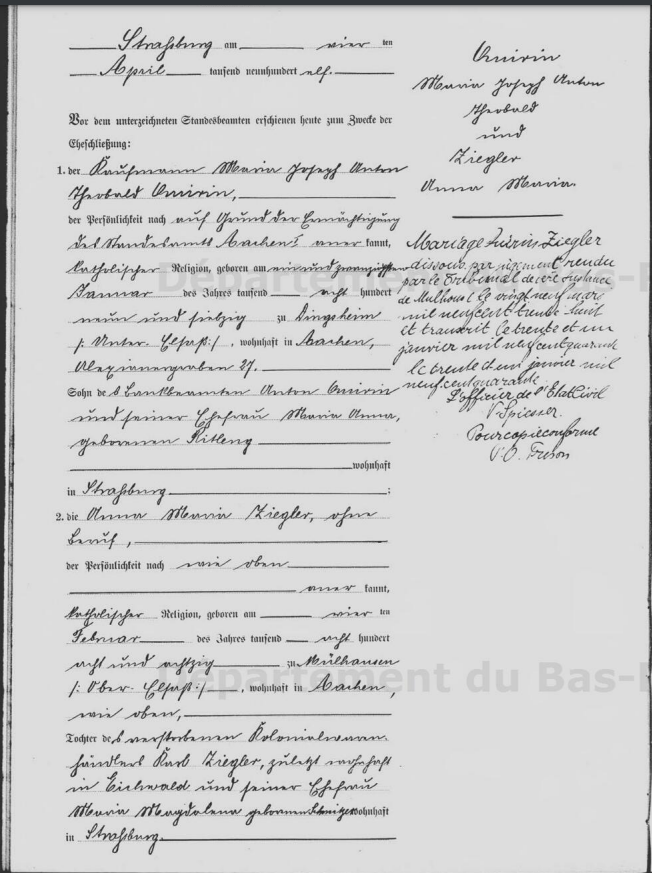 Straßburg am vier ten
April tausend neunhundert elf.
Vor dem unterzeichneten Standesbeamten erschienen heute zum Zwecke der
Eheschließung:
1. der Kaufmann Maria Joseph Anton
Theobald Quirin,
der Persönlichkeit nach auf Grund der Ermächtigung
des Standesamts Aachen I aner kannt,
katholischer Religion, geboren am einundzwanzigsten
Januar des Jahres tausend acht hundert
neun und siebzig zu Dingsheim
/: Unter-Elsaß :/, wohnhaft in Aachen,
Alexianergraben 27.
Sohn des Bankbeamten Anton Quirin
und seiner Ehefrau Maria Anna,
geborenen Kitleng
wohnhaft
in Straßburg ;
2. die Anna Maria Ziegler, ohne
Beruf,
der Persönlichkeit nach wie oben
aner kannt,
katholischer Religion, geboren am vier ten
Februar des Jahres tausend acht hundert
acht und achtzig zu Mülhausen
/: Ober-Elsaß :/, wohnhaft in Aachen,
wie oben,
Tochter des verstorbenen Kolonialwaren-
händlers Karl Ziegler, zuletzt wohnhaft
in Eichwald und seiner Ehefrau
Maria Magdalena geborenen wohnhaft
in Straßburg.
Quirin
Maria Joseph Anton
Theobald
und
Ziegler
Anna Maria.
Mariage Quirin-Ziegler
dissous par jugement rendu
par le Tribunal de 1ère instance
de Mulhouse le vingt neuf mars
mil neuf cent trente huit
et transcrit le trente et un
janvier mil neuf cent quarante
le trente et un janvier mil
neuf cent quarante
L'officier de l'Etat Civil
V. Spiesser.
Pour copie conforme
Département du Bas-R
Département du Bas-R